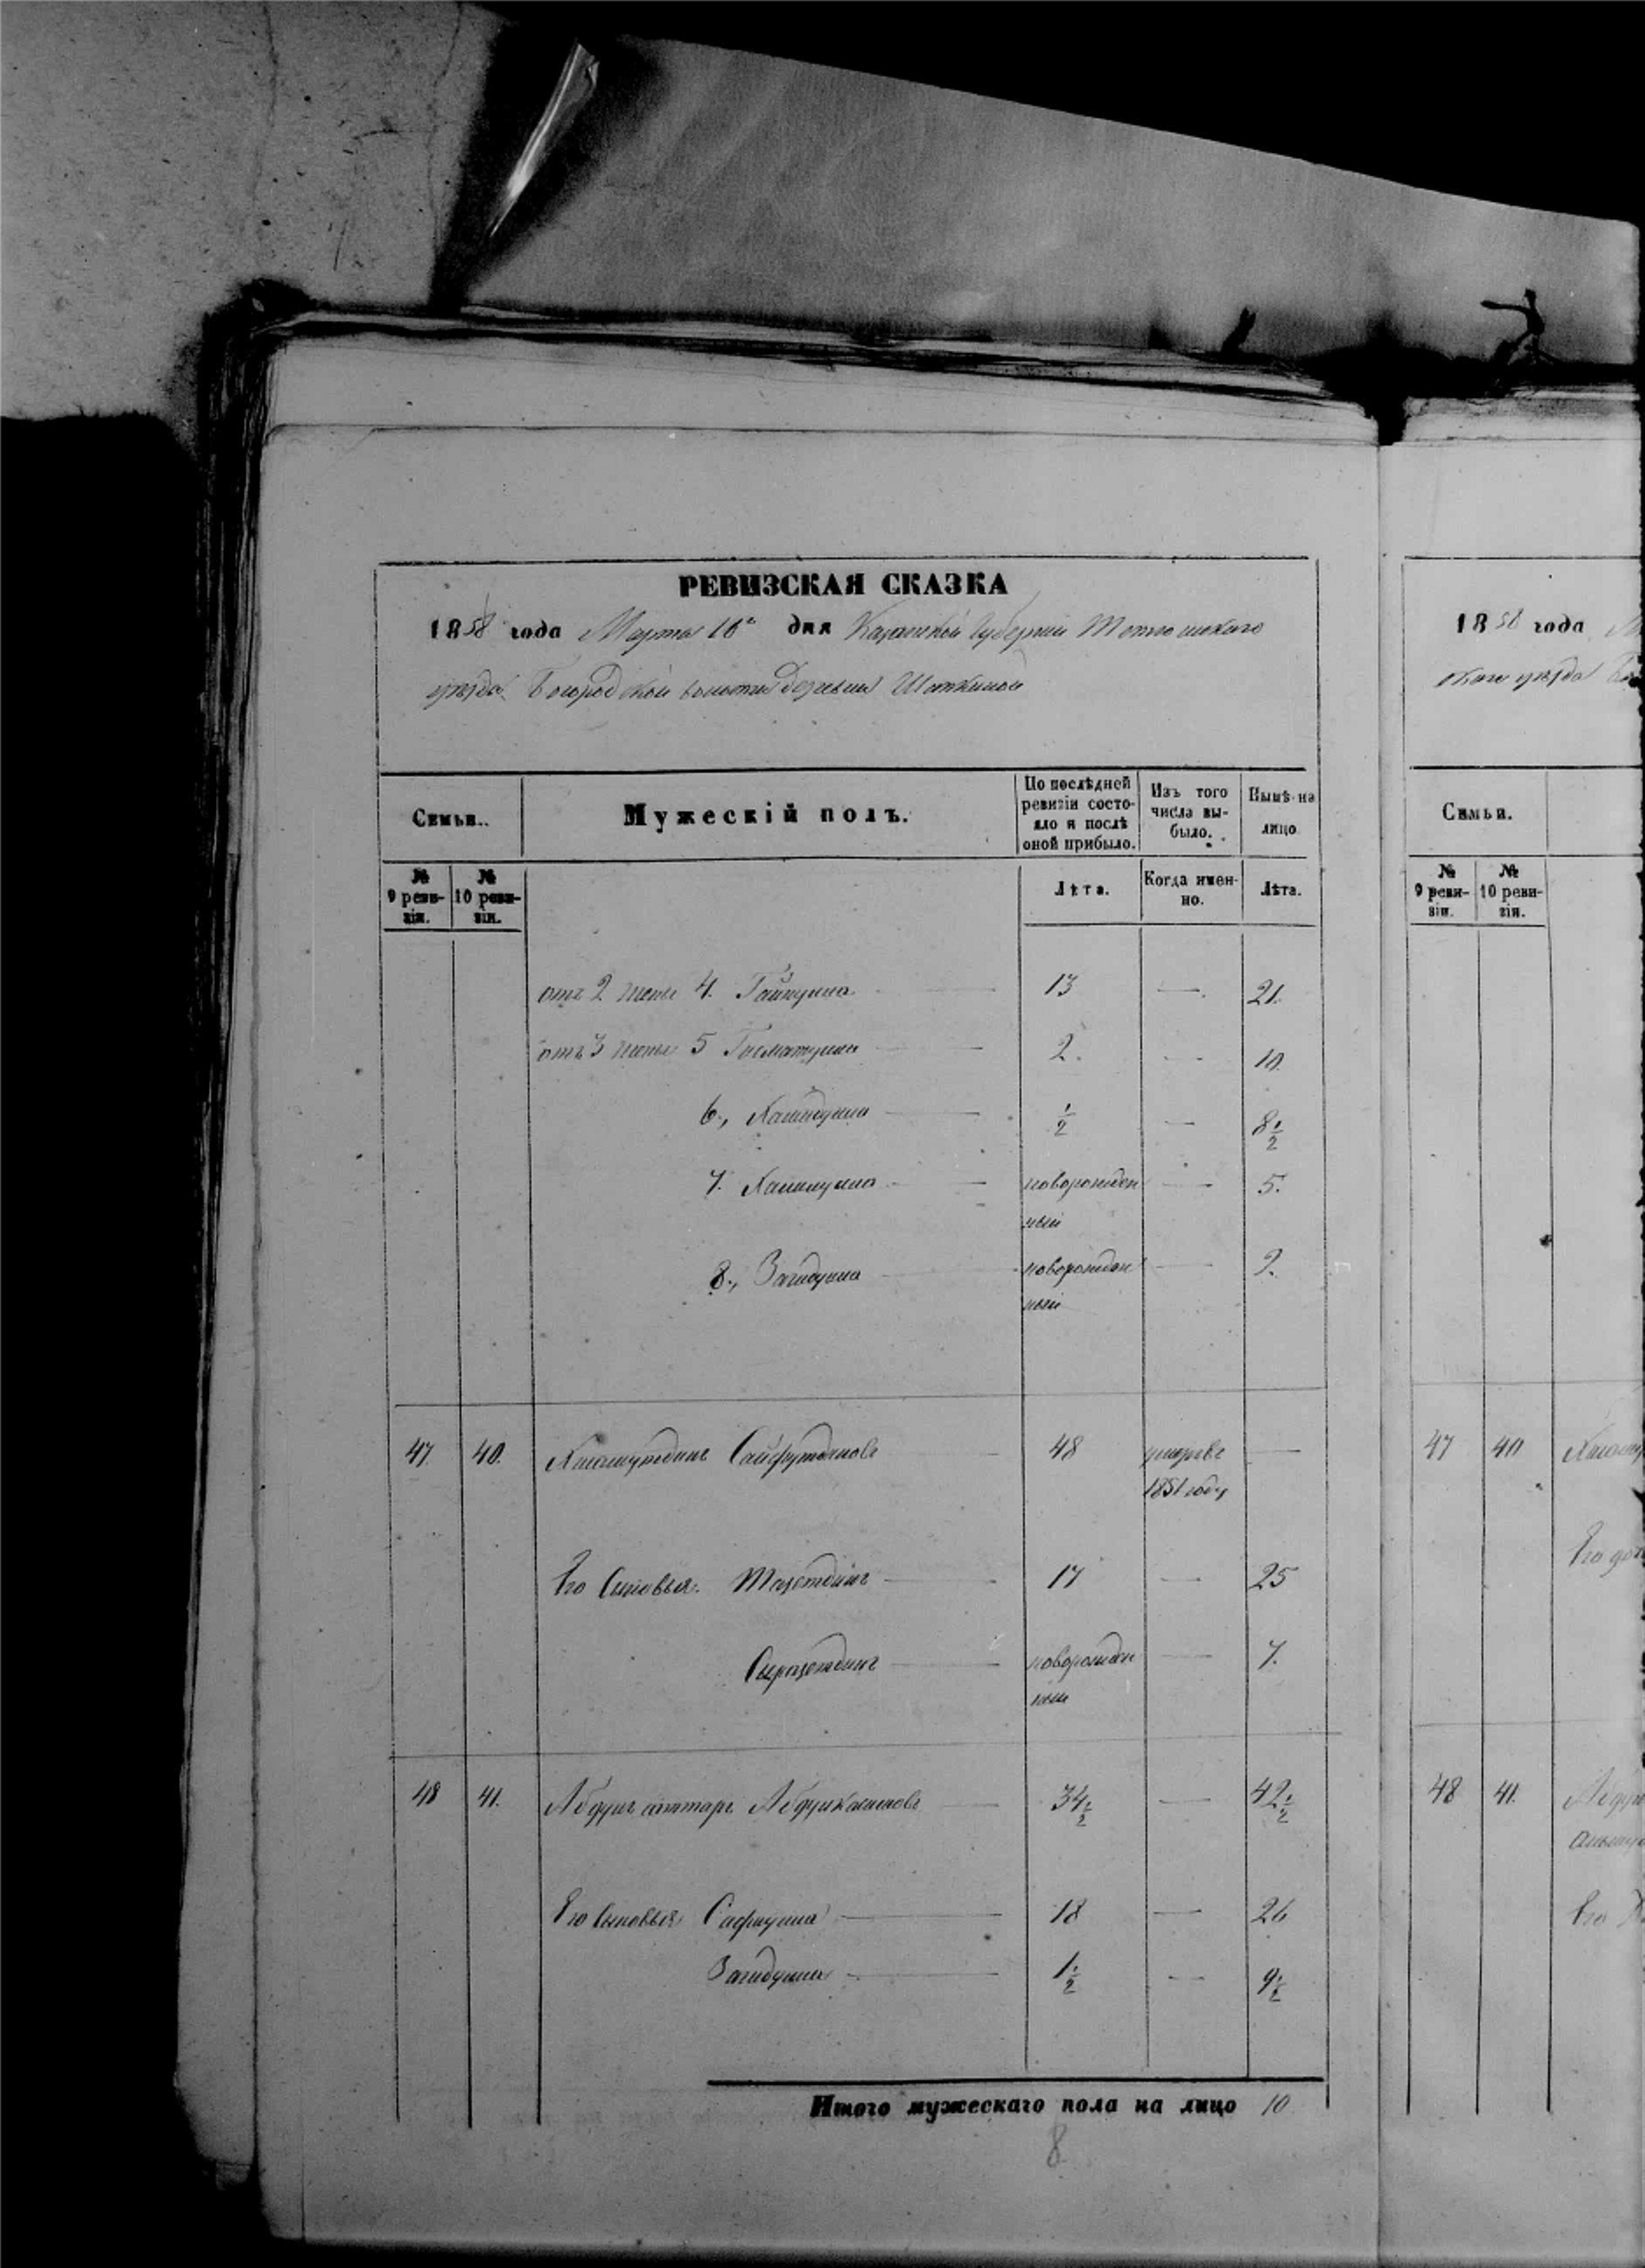 РЕВИЗСКАЯ СКАЗКА
1858 года Марта 16го дня Казанской Губерніи Тетюшскаго
уѣзда Богородской волости деревни Шоткиной
Семьи.
Мужескій полъ.
По послѣдней ревизіи состояло и послѣ оной прибыло.
Изъ того числа выбыло.
Нынѣ на лицо
№ 9 ревизіи.
№ 10 ревизіи.
Лѣта.
Когда именно.
Лѣта.
отъ 2 жены 4. 13 — 21.
отъ 3 жены 5 2. — 10.
6., ½ — 8½
7. новорожденный — 5.
8., Загидулла новорожденный — 2.
47 40. Сайфутдиновъ 48 умеръ въ 1851 году —
Его Сыновья. Тазетдинъ 17 — 25
Сиразетдинъ новорожденный — 7.
48 41. Абдулсаттаръ 34½ — 42½
Его Сыновья Сафиулла 18 — 26
Загидулла 1½ — 9½
Итого мужескаго пола на лицо 10
8
1858 года
скаго уѣзда
Семьи.
№ 9 ревизіи.
№ 10 ревизіи.
47 40
Его
48 41.
Его